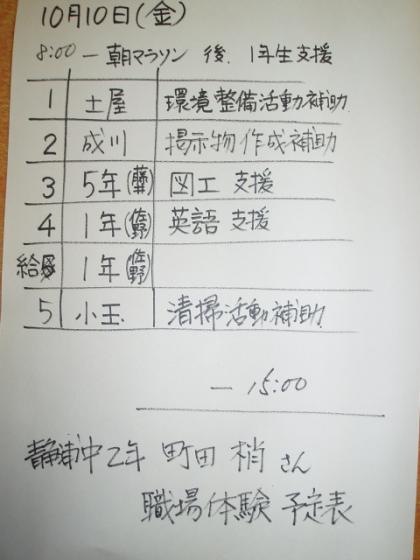 10月10日(金)
8:00 — 朝マラソン 後、1年生支援
1 土屋 環境整備活動補助
2 成川 掲示物作成補助
3 5年(藤井) 図工 支援
4 1年(佐野) 英語 支援
給食 1年(佐野)
5 小玉 清掃活動補助
— 15:00
静浦中2年 町田 梢 さん
職場体験 予定表